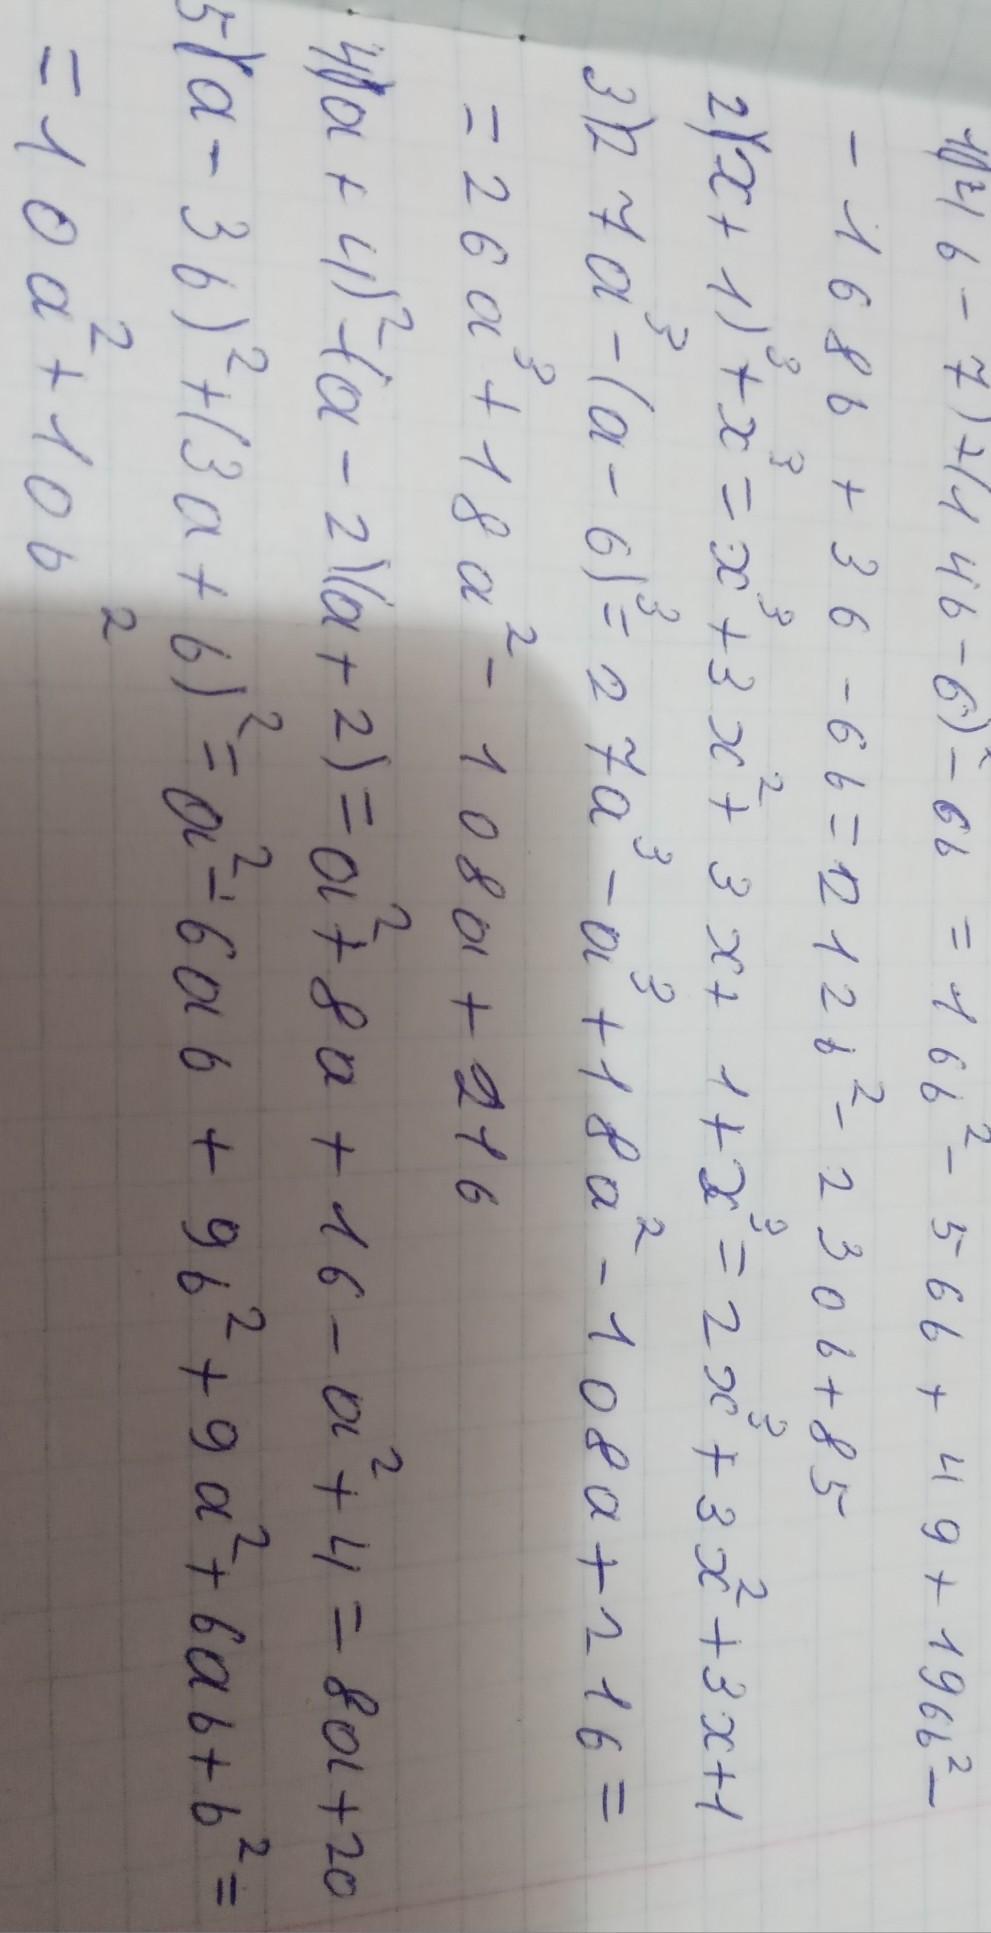 1)(4b-7)²+(14b-6)²-6b=16b²-56b+49+196b²-
-168b+36-6b=212b²-230b+85
2)(x+1)³+x³=x³+3x²+3x+1+x³=2x³+3x²+3x+1
3)27a³-(a-6)³=27a³-a³+18a²-108a+216=
=26a³+18a²-108a+216
4)(a+4)²-(a-2)(a+2)=a²+8a+16-a²+4=8a+20
5)(a-3b)²+(3a+b)²=a²-6ab+9b²+9a²+6ab+b²=
=10a²+10b²